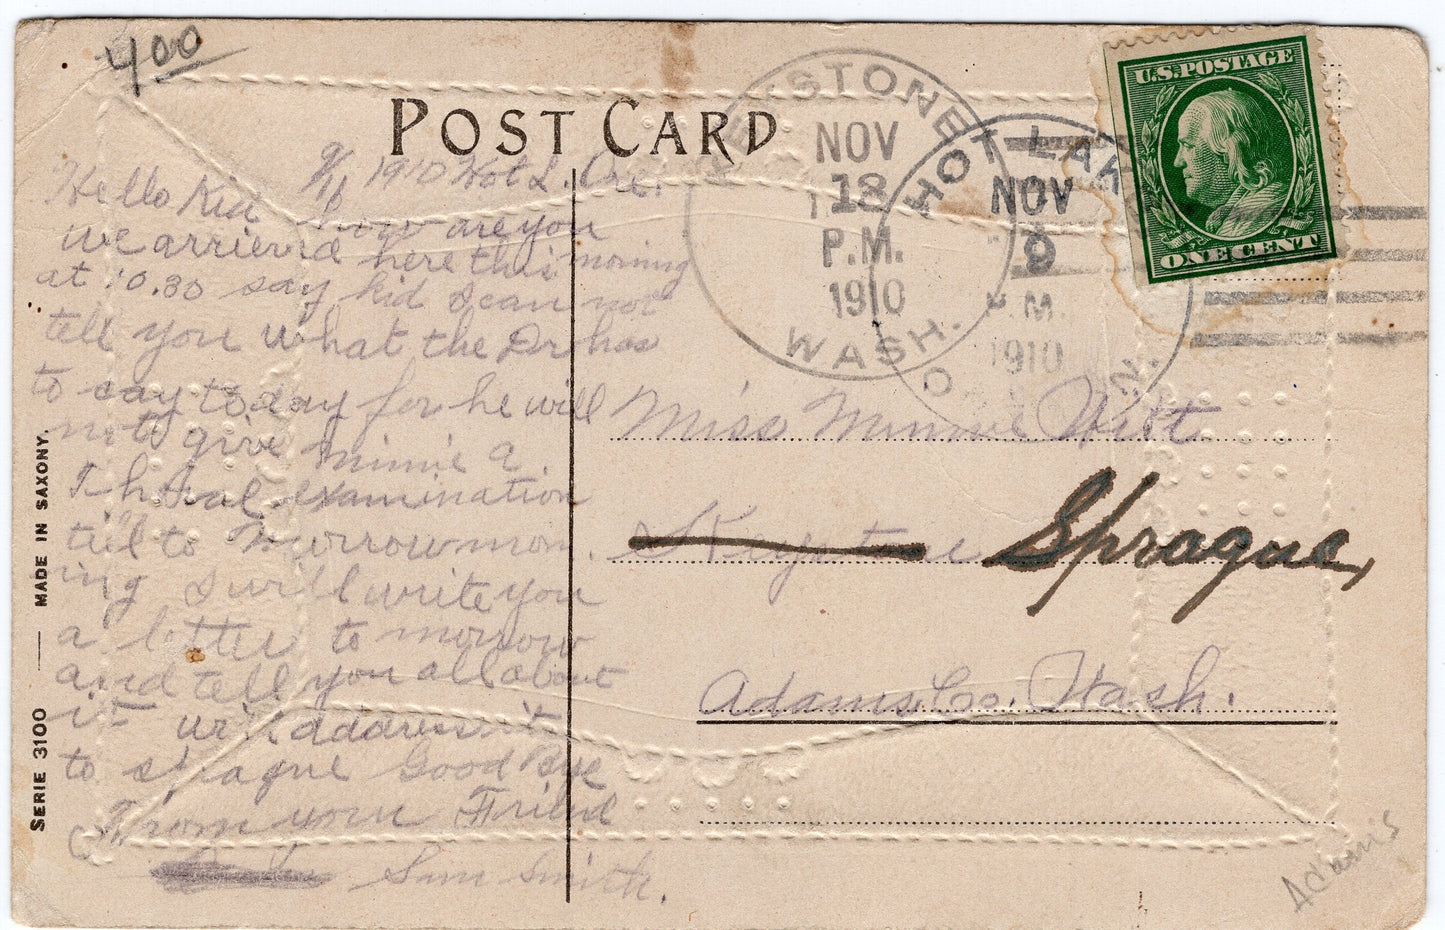 400
POST CARD
U.S. POSTAGE
ONE CENT
KEYSTONE
NOV
18
P.M.
1910
WASH.
HOT LAKE
NOV
9
P.M.
1910
O N.
9/11 1910 Hot L. Ore.
Hello Kid how are you
we arrierd here this morning
at 10.30 say kid I can not
tell you what the Dr has
to say today for he will
not give Minnie a
Thural examination
till to Murrow morn.
ing I will write you
a letter to morrow
and tell you all about
it will address it
to sprague Good Bye
From your Friend
Sam Smith.
Miss Minnie Witt
Keystone Sprague,
Adams Co. Wash.
SERIE 3100 — MADE IN SAXONY.
Adams